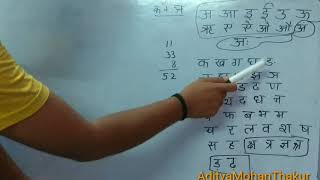 क + ञ
अ आ इ ई उ ऊ
ऋ ए ऐ ओ औ अं
अः
11
33
8
52
क ख ग घ ङ
झ ञ
ड ढ ण
द ध न
फ ब भ म
य र ल व श ष
स ह क्ष त्र ज्ञ
ड़ ढ़
AdityaMohanThakur